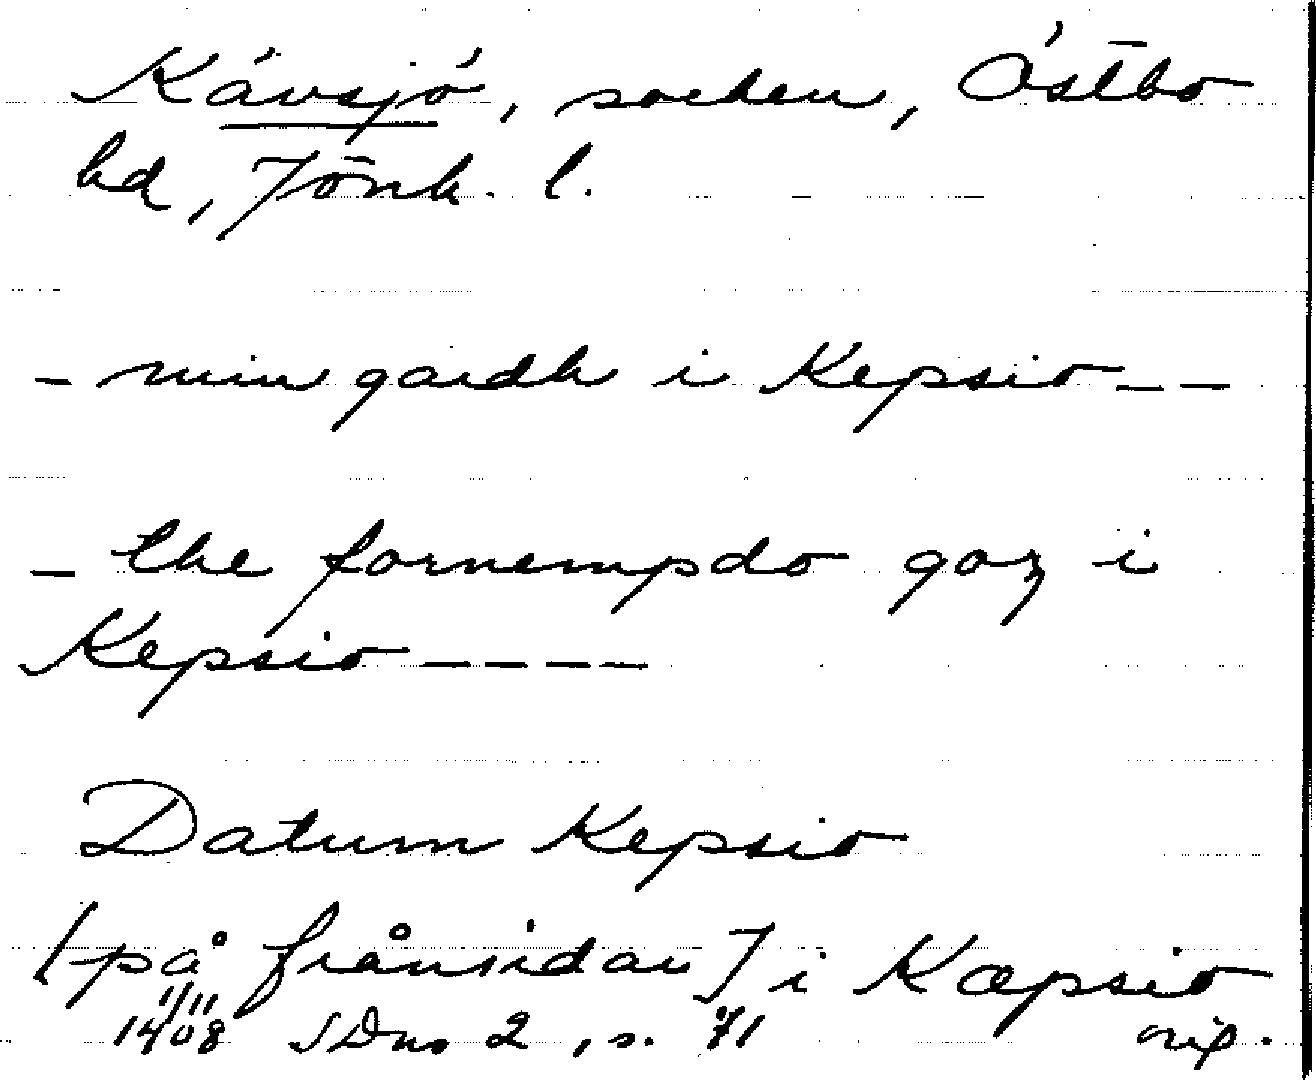 Kävsjö, socken, Östbo
hd, Jönk. l.
- min gardh i Kepsio - -
- the fornempdo goz i
Kepsio - - - -
Datum Kepsio
[på frånsidan] i Kæpsio
1/11
1408 SDns 2, s. 71 orig.